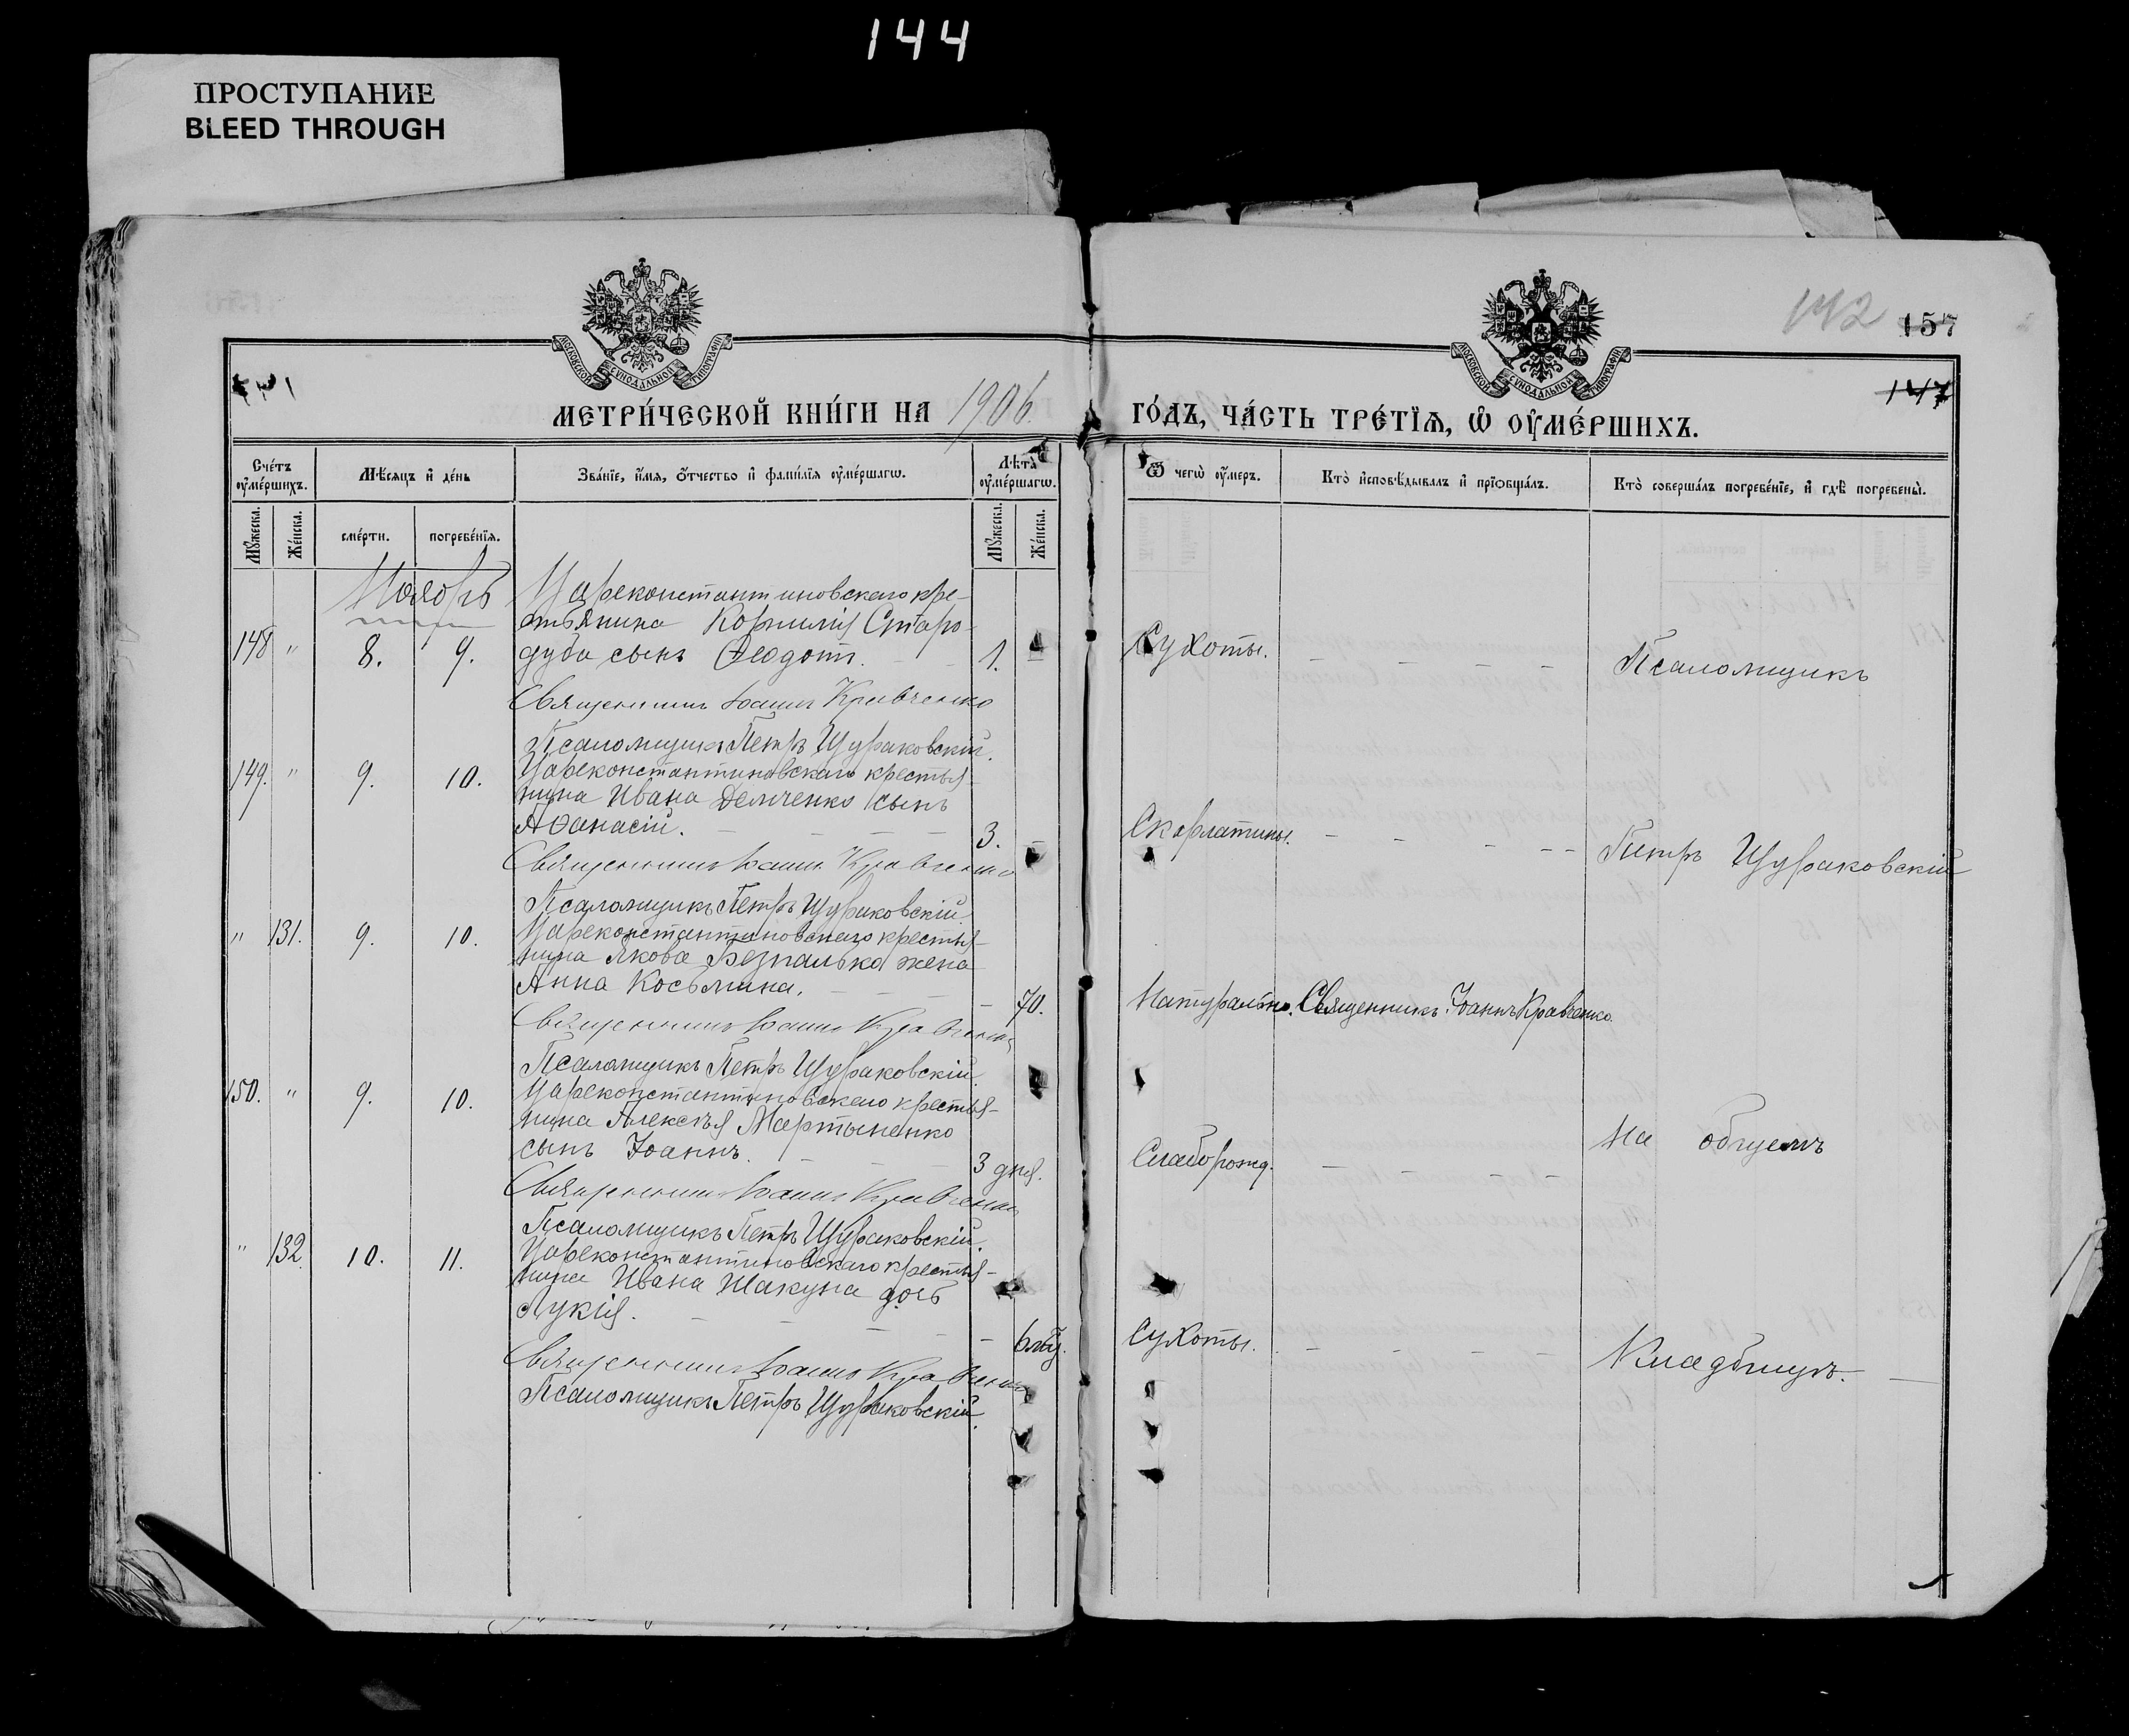 144
ПРОСТУПАНИЕ
BLEED THROUGH
МОСКОВСКОЙ СѴНОДАЛЬНОЙ ТИПОГРАФІИ
МОСКОВСКОЙ СѴНОДАЛЬНОЙ ТИПОГРАФІИ
142 157
147
МЕТРИ́ЧЕСКОЙ КНИ́ГИ НА 1906 ГО́ДЪ, ЧА́СТЬ ТРЕ́ТЇѦ, Ѡ ОУ҆МЕ́РШИХЪ.
Счéтъ оу҆мéршихъ. Мѣ́сѧцъ и҆ де́нь Зва́нїе, и҆́мѧ, ѻ҆́тчество и҆ фами́лїѧ оу҆ме́ршагѡ. Лѣ́та оу҆ме́ршагѡ.
Ѿ чегѡ̀ оу҆́меръ. Кто̀ и҆сповѣ́дывалъ и҆ прїѡбща́лъ. Кто̀ соверша́лъ погребе́нїе, и҆ гдѣ̀ погребены̀.
Мꙋ́жеска. Же́нска. сме́рти. погребе́нїѧ. Мꙋ́жеска. Же́нска.
Ноябрь
Цареконстантиновскаго кре-
стьянина Корнилія Старо-
148 " 8. 9. дуба сынъ Ѳеодотъ. 1. – Сухоты. – – – – Псаломщикъ
Священникъ Іоаннъ Кравченко
Псаломщикъ Петръ Щураковскій.
149. " 9. 10. Цареконстантиновскаго крестья-
нина Ивана Демченко сынъ
Аѳанасій. – – – – 3. – Скарлатины. – – – – Петръ Щураковскій
Священникъ Іоаннъ Кравченко
Псаломщикъ Петръ Щураковскій.
" 131. 9. 10. Цареконстантиновскаго крестья-
нина Якова Безпалько жена
Анна Косьмина. – – – – 70. Натурально. Священникъ Іоаннъ Кравченко.
Священникъ Іоаннъ Кравченко
Псаломщикъ Петръ Щураковскій.
150. " 9. 10. Цареконстантиновскаго крестья-
нина Алексѣя Мартыненко
сынъ Іоаннъ. – – – 3 дня. Слаборожд. – – – – На общемъ
Священникъ Іоаннъ Кравченко
Псаломщикъ Петръ Щураковскій.
" 132. 10. 11. Цареконстантиновскаго крестья-
нина Ивана Шакуна дочь
Лукія. – – – – – 6 мѣ. Сухоты. – – – – Кладбищѣ. –
Священникъ Іоаннъ Кравченко
Псаломщикъ Петръ Щураковскій.